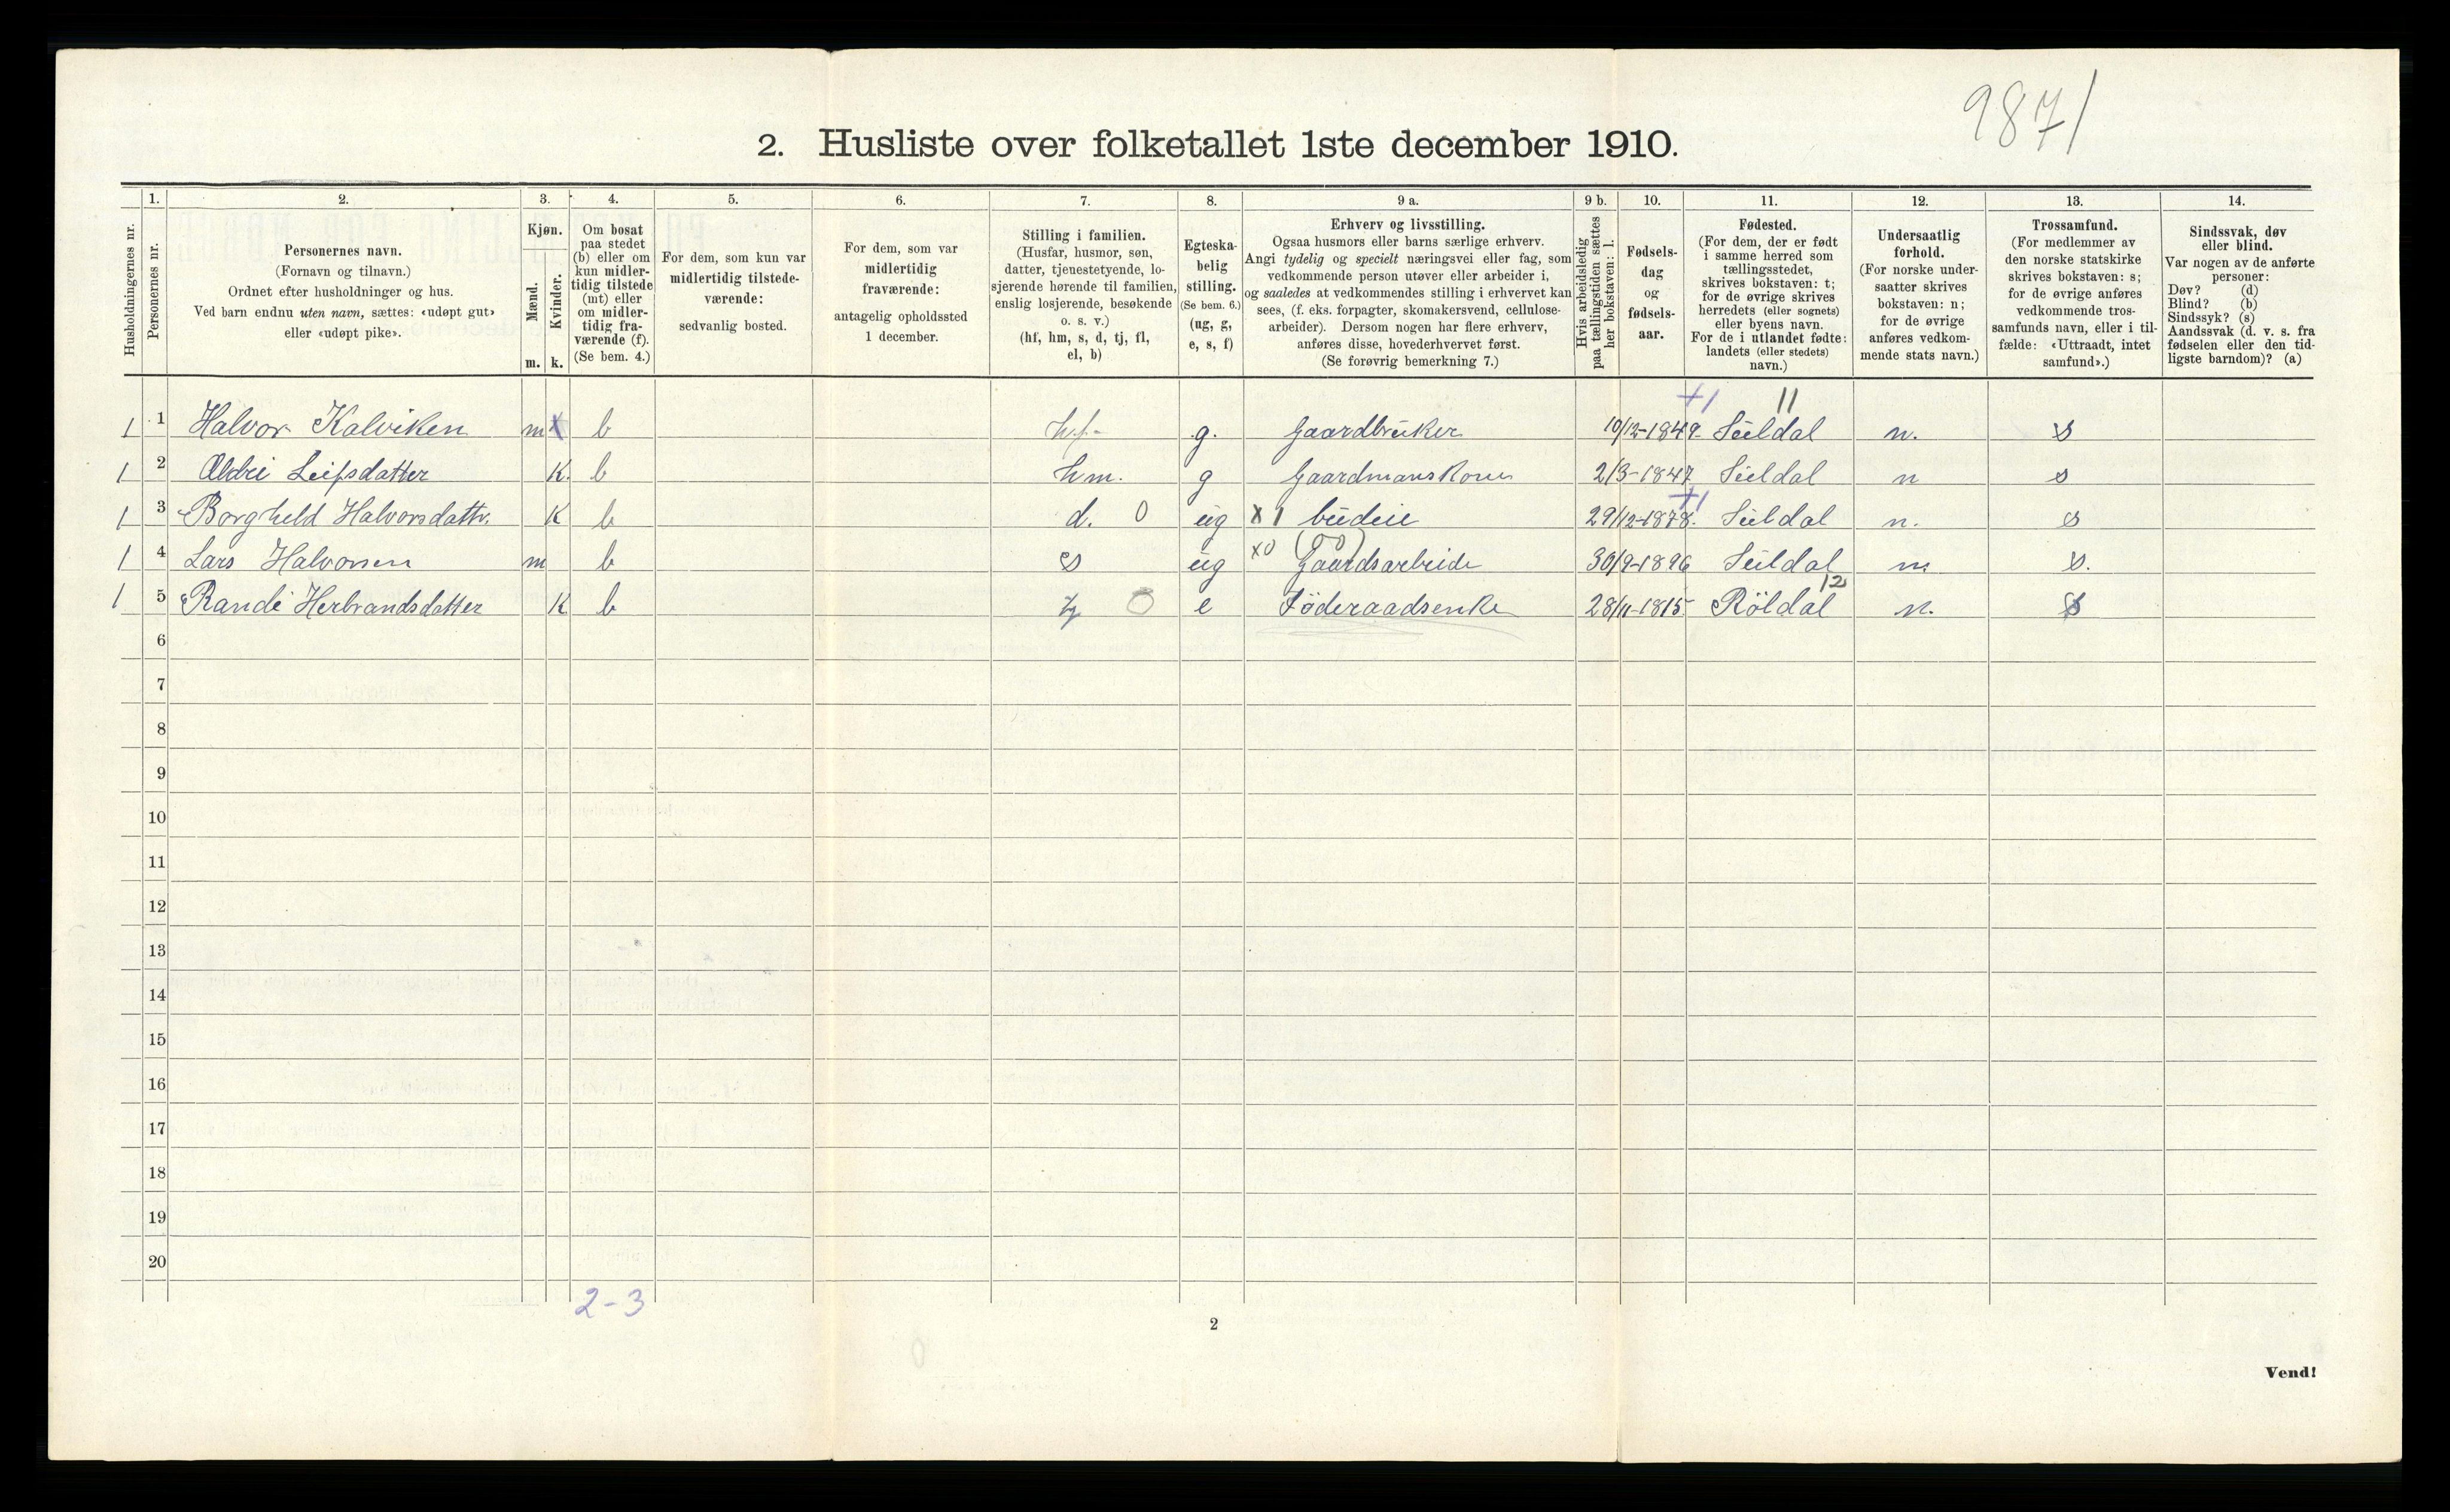 9871
2. Husliste over folketallet 1ste december 1910.
Husholdningernes nr.
1. Personernes nr.
2.
Personernes navn.
(Fornavn og tilnavn.)
Ordnet efter husholdninger og hus.
Ved barn endnu uten navn, sættes: «udøpt gut»
eller «udøpt pike».
3.
Kjøn.
Mænd. Kvinder.
m. k.
4.
Om bosat
paa stedet
(b) eller om
kun midler-
tidig tilstede
(mt) eller
om midler-
tidig fra-
værende (f).
(Se bem. 4.)
5.
For dem, som kun var
midlertidig tilstede-
værende:
sedvanlig bosted.
6.
For dem, som var
midlertidig
fraværende:
antagelig opholdssted
1 december.
7.
Stilling i familien.
(Husfar, husmor, søn,
datter, tjenestetyende, lo-
sjerende hørende til familien,
enslig losjerende, besøkende
o. s. v.)
(hf, hm, s, d, tj, fl,
el, b)
8.
Egteska-
belig
stilling.
(Se bem. 6.)
(ug, g,
e, s, f)
9 a.
Erhverv og livsstilling.
Ogsaa husmors eller barns særlige erhverv.
Angi tydelig og specielt næringsvei eller fag, som
vedkommende person utøver eller arbeider i,
og saaledes at vedkommendes stilling i erhvervet kan
sees, (f. eks. forpagter, skomakersvend, cellulose-
arbeider). Dersom nogen har flere erhverv,
anføres disse, hovederhvervet først.
(Se forøvrig bemerkning 7.)
9 b.
Hvis arbeidsledig
paa tællingstiden sættes
her bokstaven: l.
10.
Fødsels-
dag
og
fødsels-
aar.
11.
Fødested.
(For dem, der er født
i samme herred som
tællingsstedet,
skrives bokstaven: t;
for de øvrige skrives
herredets (eller sognets)
eller byens navn.
For de i utlandet fødte:
landets (eller stedets)
navn.)
12.
Undersaatlig
forhold.
(For norske under-
saatter skrives
bokstaven: n;
for de øvrige
anføres vedkom-
mende stats navn.)
13.
Trossamfund.
(For medlemmer av
den norske statskirke
skrives bokstaven: s;
for de øvrige anføres
vedkommende tros-
samfunds navn, eller i til-
fælde: «Uttraadt, intet
samfund».)
14.
Sindssvak, døv
eller blind.
Var nogen av de anførte
personer:
Døv? (d)
Blind? (b)
Sindssyk? (s)
Aandssvak (d. v. s. fra
fødselen eller den tid-
ligste barndom)? (a)
+1 11
1 1 Halvor Kalviken m x b hf- g. Gaardbruker 10/12-1849 Suldal n. s
1 2 Leifsdatter K. b hm. g Gaardmanskone 2/3-1847 Suldal n s
+1
1 3 Borgheld Halvorsdattr. K b d. 0 ug x 1 budeie 29/12-1878. Suldal n. s
1 4 Lars Halvorsen m b s ug x0 (00) Gaardsarbeide 30/9-1896 Suldal n. s.
12
1 5 Randi Herbrandsdatter K b 0 e Föderaadsenke 28/11-1815 Röldal n. s
6
7
8
9
10
11
12
13
14
15
16
17
18
19
20
2-3
2
0
Vend!